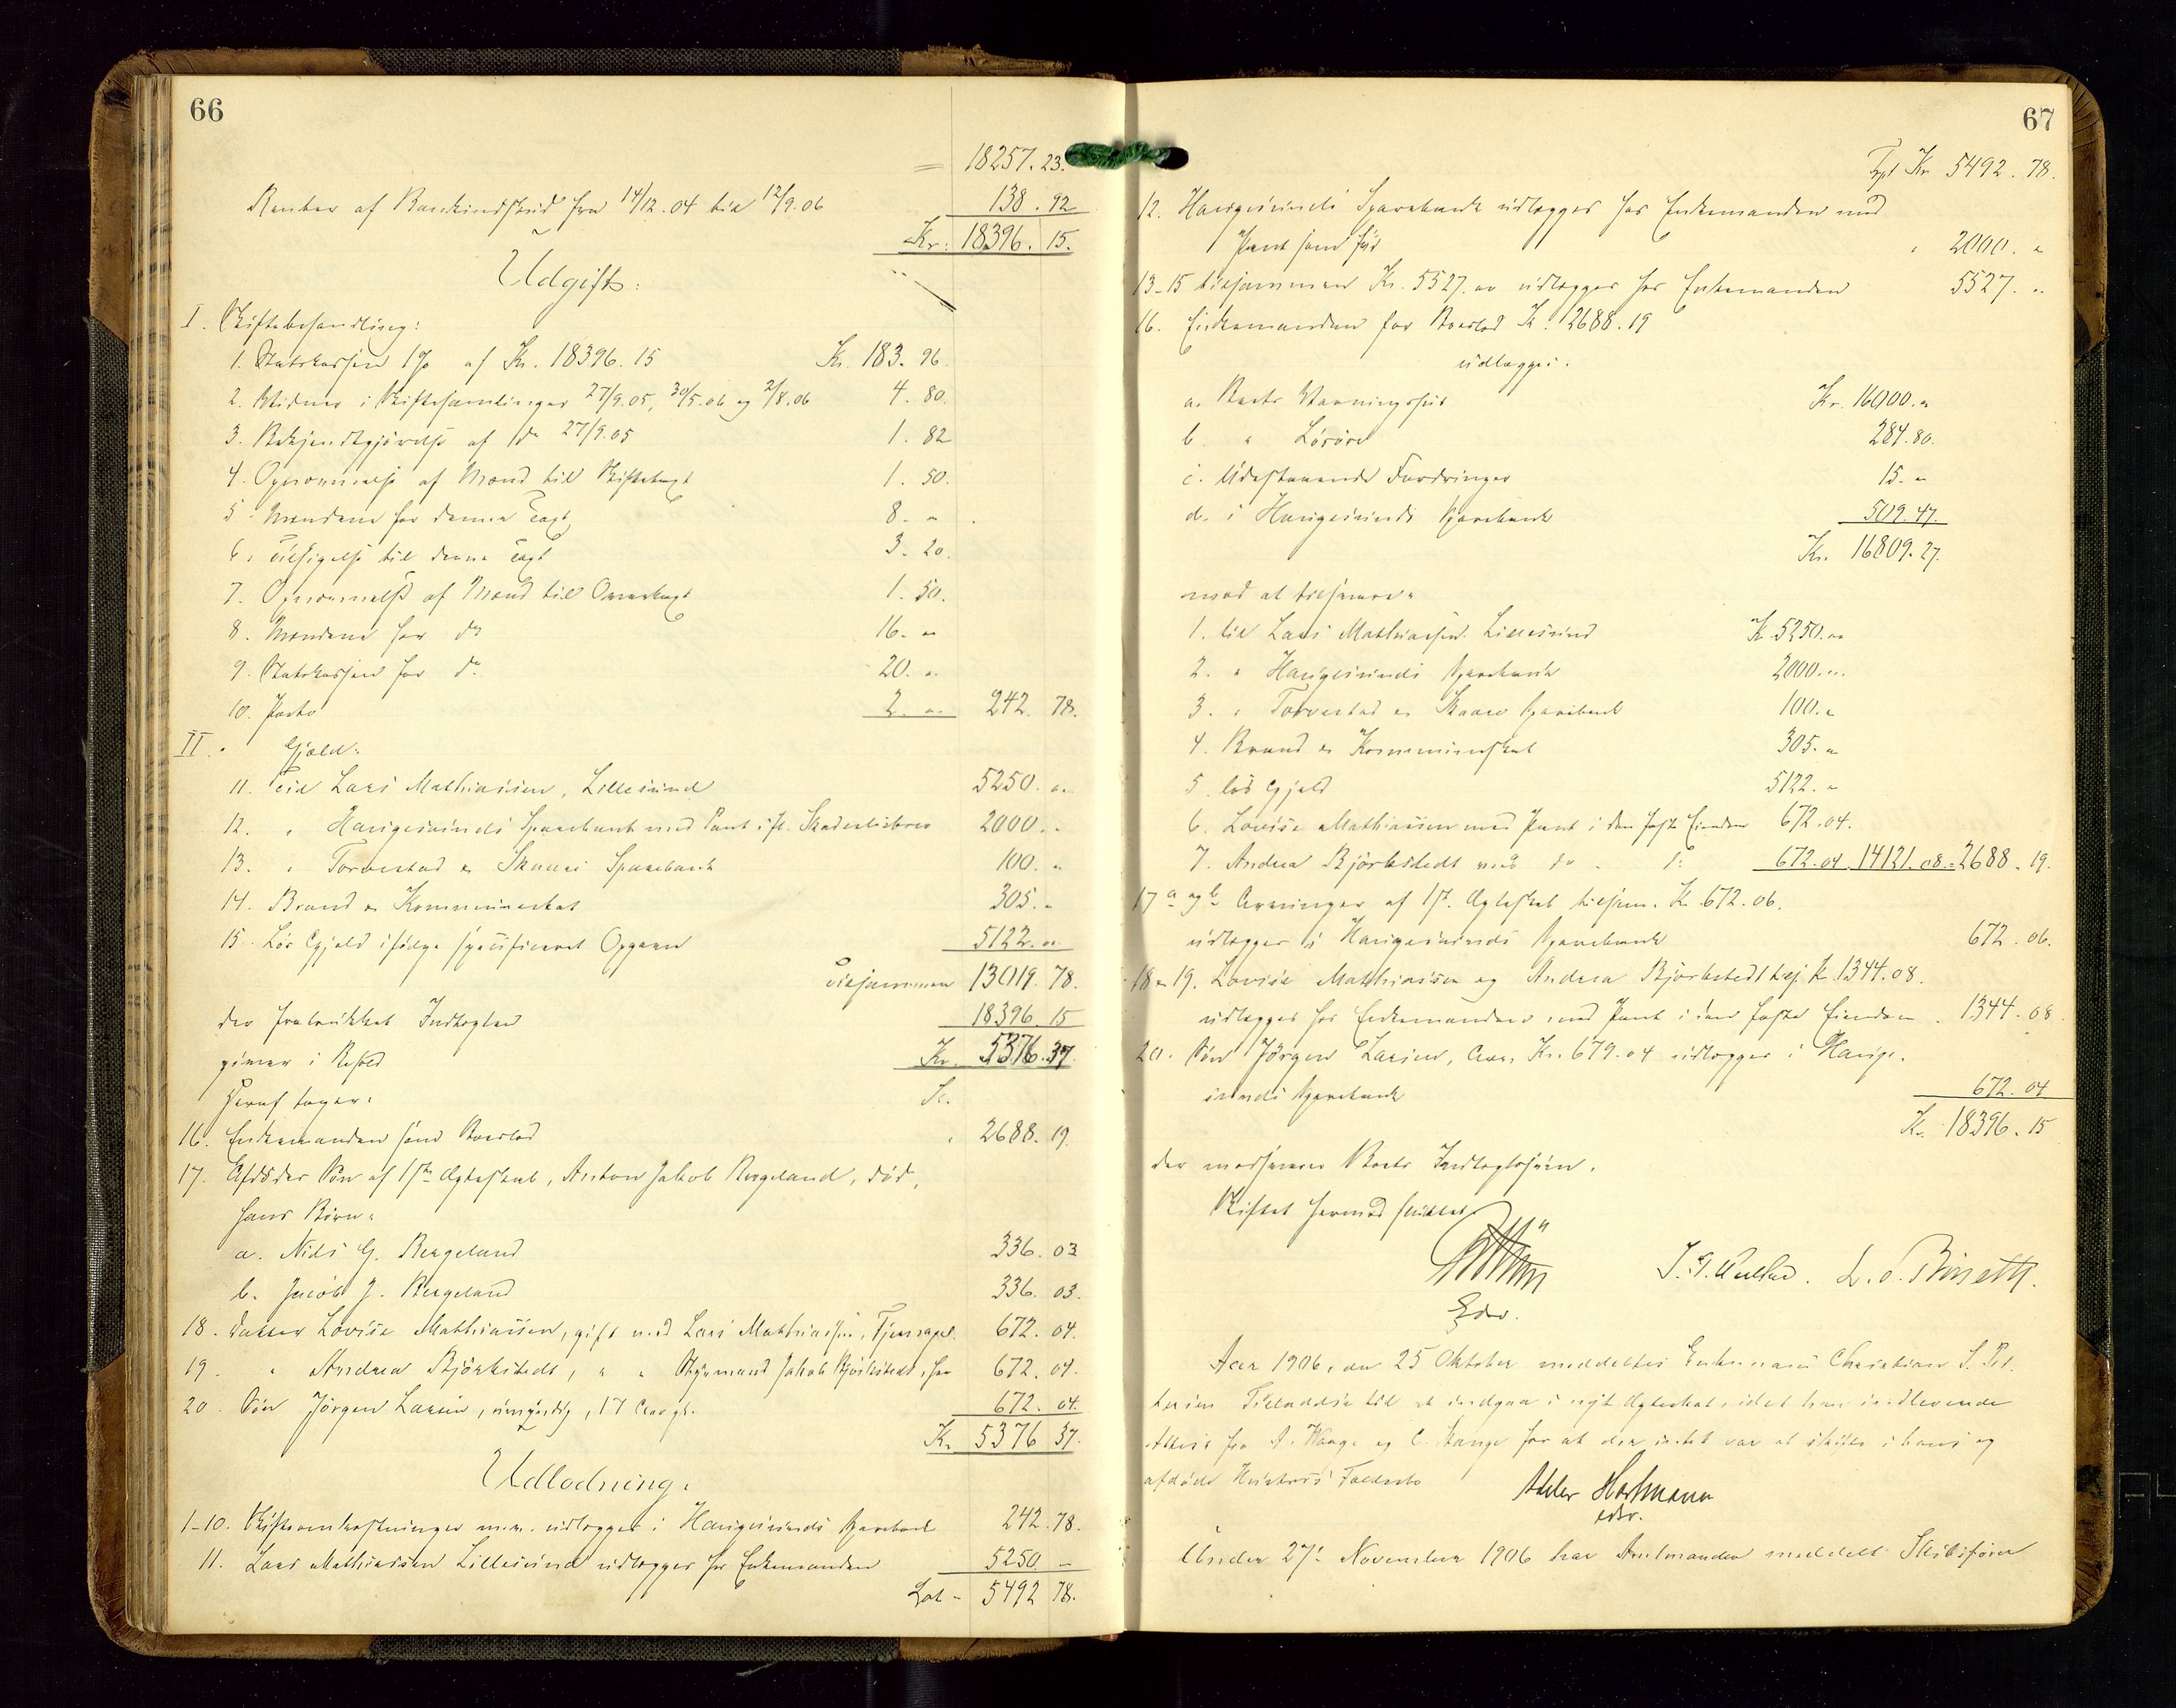 66
= 18257. 23.
Renter af Bankindskud fra 14/12. 04 til 12/9. 06 138. 92
Kr. 18396. 15.
Udgift:
I. Skiftebehandling:
1. Statskassen 1% af Kr. 18396. 15 Kr. 183. 96.
2. Vidner i Skiftesamlinger 27/9. 05, 30/5. 06 og 2/8. 06 4. 80.
3. Bekjendtgjørelse af do 27/9. 05 1. 82
4. Opnævnelse af Mænd til Skiftetagt 1. 50.
5. Mændene for denne Taxt 8. "
6. Tilsigelse til denne Taxt 3. 20.
7. Opnævnelse af Mænd til Overtagt 1. 50.
8. Mændene for do 16. "
9. Statskassen for do 20. "
10. Porto 2. " 242. 78.
II. Gjæld:
11. Til Lars Mathiassen, Lillesund 5250. "
12. " Haugesunds Sparebank med Pant ifl. Skadeslisbrev 2000. "
13. " Torvestad & Skaare Sparebank 100. "
14. Brand & Kommuneskat 305. "
15. Løs Gjæld ifølge specificeret Opgave 5122. "
Tilsammen 13019. 78.
der fratrukket Indtægten 18396. 15
giver i Behold Kr. 5376. 37
Heraf tager: Kr.
16. Enkemanden sin Boeslod " 2688. 19.
17. Afdøde Søn af 1ste Ægteskab, Anton Jakob Bergeland, død,
hans Børn:
a. Nils G. Bergeland 336. 03
b. Jacob J. Bergeland 336. 03.
18. Datter Lovise Mathiassen, gift med Lars Mathiassen, 672. 04.
19. " Andrea Björkstedt, " " Styrmand Jakob Björkstedt, her 672. 04.
20. Søn Jørgen Larsen, umyndig, 17 Aar gl. 672. 04.
Kr. 5376 37.
Udlodning.
1-10. Skifteomkostninger m.m. udlægges i Haugesunds Sparebank 242. 78.
11. Lars Mathiassen Lillesund udlægges hos Enkemanden 5250 "
Lat. 5492 78.
67
Tpt Kr. 5492. 78.
12. Haugesunds Sparebank udlægges hos Enkemanden med
Pant som før " 2000. "
13-15 tilsammen Kr. 5527. " udlægges hos Enkemanden 5527. "
16. Enkemanden for Boeslod Kr. 2688. 19
udlægges:
a. Boets Vaaningshus Kr. 16000. "
b. " Løsøre 284. 80.
c. Udestaaende Fordringer 15. "
d. i Haugesunds Sparebank 509. 47.
Kr. 16809. 27.
mod at tilsvare:
1. til Lars Mathiassen Lillesund Kr. 5250. "
2. " Haugesunds Sparebank 2000. "
3. " Torvestad & Skaare Sparebank 100. "
4. Brand & Kommuneskat 305. "
5. løs Gjæld 5122. "
6. Lovise Mathiassen med Pant i den faste Eiendom 672. 04.
7. Andrea Björkstedt med do - do 672. 04 14121. 08 = 2688. 19.
17 a og b Arvinger af 1ste Ægteskab tilsam. Kr. 672. 06.
udlægges i Haugesunds Sparebank 672. 06.
18 & 19. Lovise Mathiassen og Andrea Björkstedt tils. Kr. 1344. 08.
udlægges hos Enkemanden med Pant i den faste Eiendom. 1344. 08
20. Søn Jørgen Larsen, Arv Kr. 679. 04 udlægges i Hauge-
sunds Sparebank 672. 04
Kr. 18396. 15
der modsvarer Boets Indtægtssum.
Skiftet hermed sluttet
Edv.
Aar 1906, den 25 Oktober meddeltes Enkemand Christian S. Pet-
tersen Tilladelse til at indgaa i nyt Ægteskab, idet han indleverede
Attest fra A. Hauge og C. Hauge for at der intet var at skifte i hans og
afdøde Hustrus Fællesbo Adler Hartmann
edv.
Under 27de November 1906 har Amtmanden meddelt Skibsfører